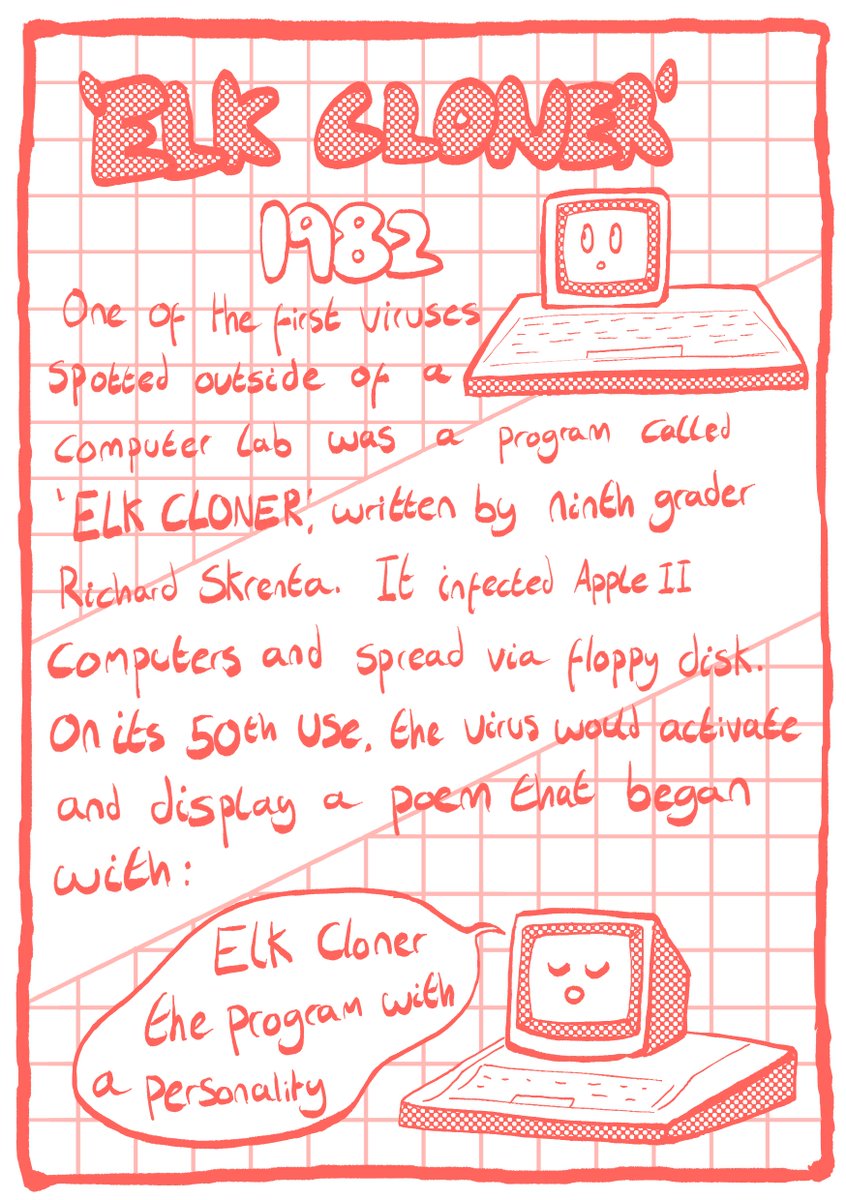 'ELK CLONER'
1982
One of the first viruses
spotted outside of a
computer lab was a program called
'ELK CLONER', written by ninth grader
Richard Skrenta. It infected Apple II
Computers and spread via floppy disk.
On its 50th use, the virus would activate
and display a poem that began
with:
Elk Cloner
the program with
a personality